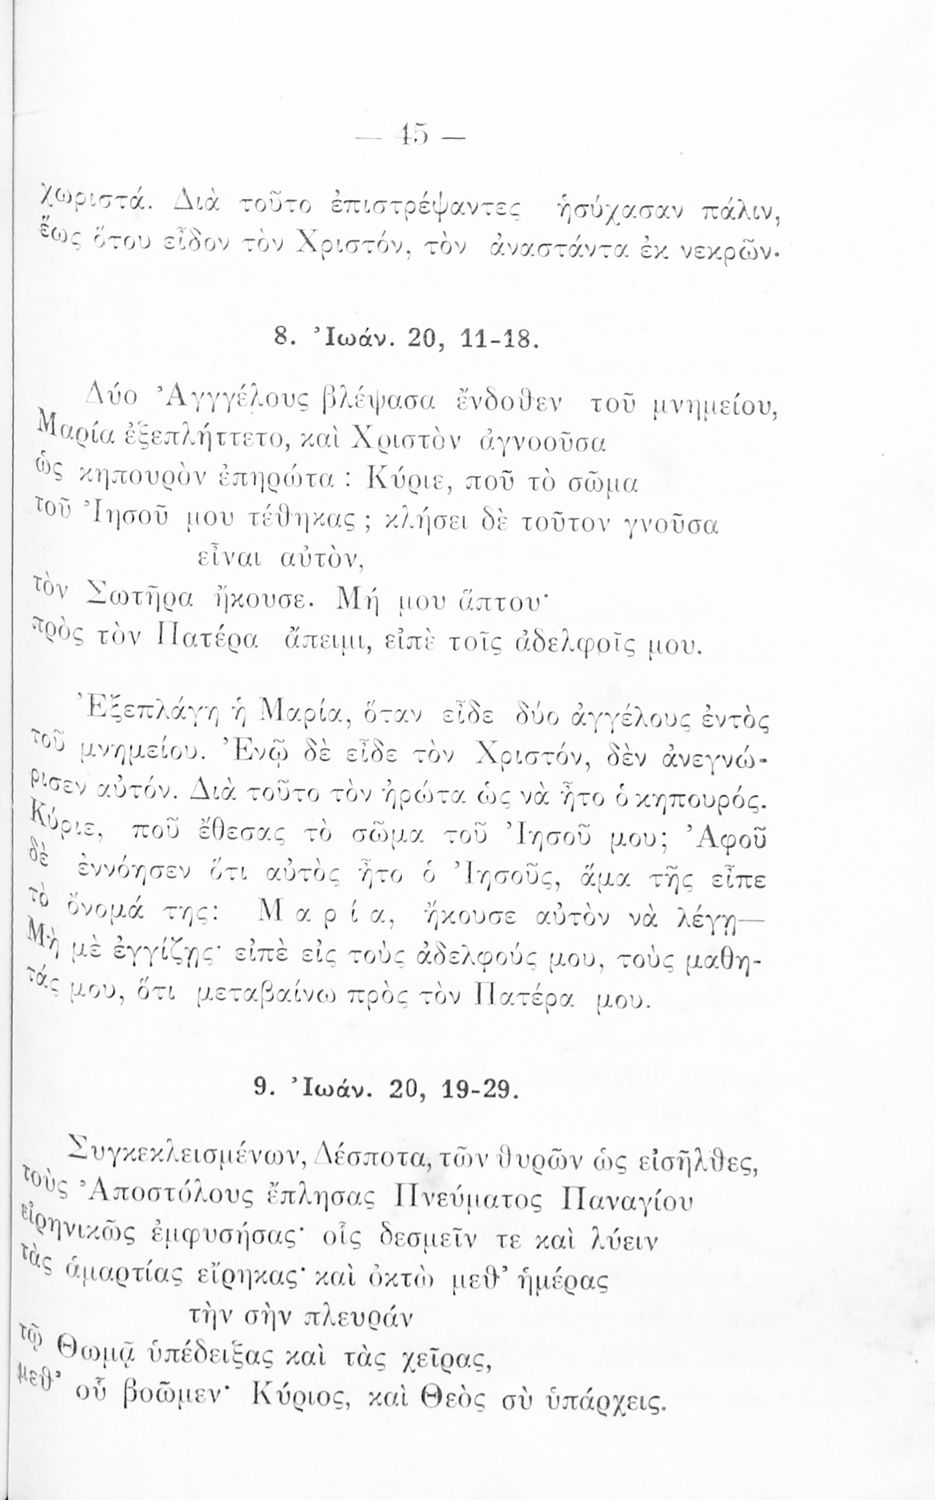 — 45 —
χωριστά. Διὰ τοῦτο ἐπιστρέψαντες ἡσύχασαν πάλιν,
ἕως ὅτου εἶδον τὸν Χριστόν, τὸν ἀναστάντα ἐκ νεκρῶν.
8. Ἰωάν. 20, 11-18.
Δύο Ἀγγγέλους βλέψασα ἔνδοθεν τοῦ μνημείου,
Μαρία ἐξεπλήττετο, καὶ Χριστὸν ἀγνοοῦσα
ὡς κηπουρὸν ἐπηρώτα : Κύριε, ποῦ τὸ σῶμα
τοῦ Ἰησοῦ μου τέθηκας ; κλήσει δὲ τοῦτον γνοῦσα
εἶναι αὐτὸν,
τὸν Σωτῆρα ἤκουσε. Μή μου ἅπτου·
πρὸς τὸν Πατέρα ἄπειμι, εἰπὲ τοῖς ἀδελφοῖς μου.
Ἐξεπλάγη ἡ Μαρία, ὅταν εἶδε δύο ἀγγέλους ἐντὸς
τοῦ μνημείου. Ἐνῷ δὲ εἶδε τὸν Χριστόν, δὲν ἀνεγνώ-
ρισεν αὐτόν. Διὰ τοῦτο τὸν ἠρώτα ὡς νὰ ἦτο ὁ κηπουρός.
Κύριε, ποῦ ἔθεσας τὸ σῶμα τοῦ Ἰησοῦ μου; Ἀφοῦ
δὲ ἐννόησεν ὅτι αὐτὸς ἦτο ὁ Ἰησοῦς, ἅμα τῆς εἶπε
τὸ ὄνομά της: Μ α ρ ί α, ἤκουσε αὐτὸν νὰ λέγῃ—
Μὴ μὲ ἐγγίζῃς· εἰπὲ εἰς τοὺς ἀδελφούς μου, τοὺς μαθη-
τάς μου, ὅτι μεταβαίνω πρὸς τὸν Πατέρα μου.
9. Ἰωάν. 20, 19-29.
Συγκεκλεισμένων, Δέσποτα, τῶν θυρῶν ὡς εἰσῆλθες,
τοὺς Ἀποστόλους ἔπλησας Πνεύματος Παναγίου
εἰρηνικῶς ἐμφυσήσας· οἷς δεσμεῖν τε καὶ λύειν
τὰς ἁμαρτίας εἴρηκας· καὶ ὀκτὼ μεθ' ἡμέρας
τὴν σὴν πλευράν
τῷ Θωμᾷ ὑπέδειξας καὶ τὰς χεῖρας,
μεθ' οὗ βοῶμεν· Κύριος, καὶ Θεὸς σὺ ὑπάρχεις.